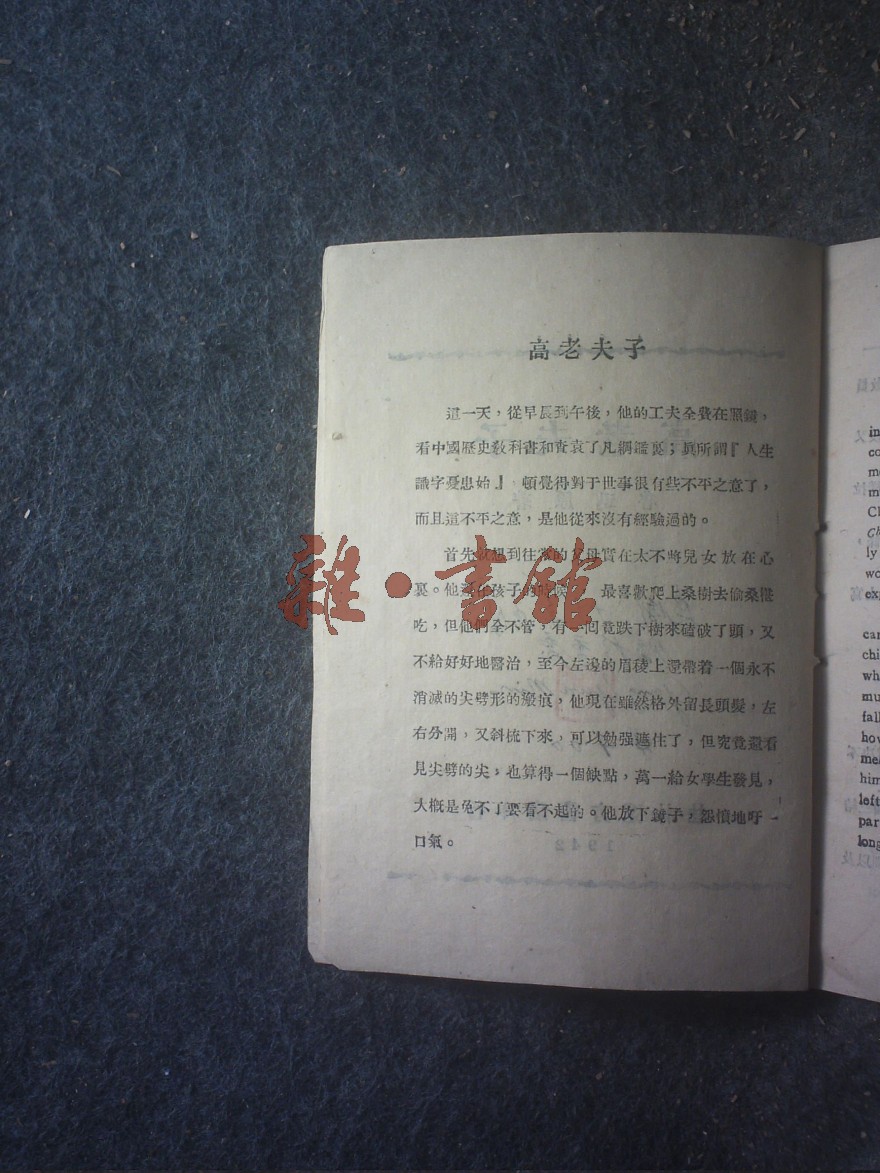 高老夫子
這一天，從早晨到午後，他的工夫全費在照鏡，
看中國歷史敎科書和查袁了凡綱鑑裏；眞所謂『人生
識字憂患始』頓覺得對于世事很有些不平之意了，
而且這不平之意，是他從來沒有經驗過的。
首先就想到往常的父母實在太不將兒女放在心
裏。他還在孩子的時候，最喜歡爬上桑樹去偷桑椹
吃，但他們全不管，有一回竟跌下樹來磕破了頭，又
不給好好地醫治，至今左邊的眉稜上還帶着一個永不
消滅的尖劈形的瘢痕，他現在雖然格外留長頭髮，左
右分開，又斜梳下來，可以勉强遮住了，但究竟還看
見尖劈的尖，也算得一個缺點，萬一給女學生發見，
大槪是免不了要看不起的。他放下鏡子，怨憤地吁一
口氣。
雜·書館
1942
in
co
me
mu
Ch
Ch
ly
wo
exp
can
chi
wh
mu
fall
how
med
him
left
par
long